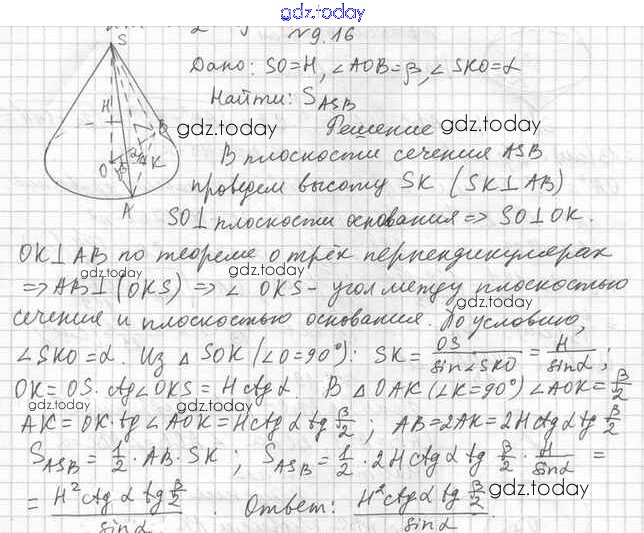 gdz.today
№9.16
S
Дано: SO=H, ∠AOB=β, ∠SKO=α
Найти: S_ASB
H
B
gdz.today
Решение gdz.today
O
β
α
K
A
В плоскости сечения ASB
проведем высоту SK (SK⊥AB)
SO⊥плоскости основания ⇒ SO⊥OK.
OK⊥AB по теореме о трёх перпендикулярах
gdz.today gdz.today
⇒ AB⊥(OKS) ⇒ ∠OKS - угол между плоскостью
сечения и плоскостью основания. По условию,
∠SKO=α. Из △SOK (∠O=90°): SK = OS/sin∠SKO = H/sinα;
OK = OS·ctg∠OKS = H ctg α. В △OAK (∠K=90°) ∠AOK = β/2
gdz.today gdz.today
AK = OK·tg∠AOK = H ctg α tg β/2; AB = 2AK = 2H ctg α tg β/2
S_ASB = 1/2·AB·SK; S_ASB = 1/2·2H ctg α tg β/2·H/sinα =
= H² ctg α tg β/2 / sinα. Ответ: H² ctg α tg β/2 / sinα.
gdz.today gdz.today